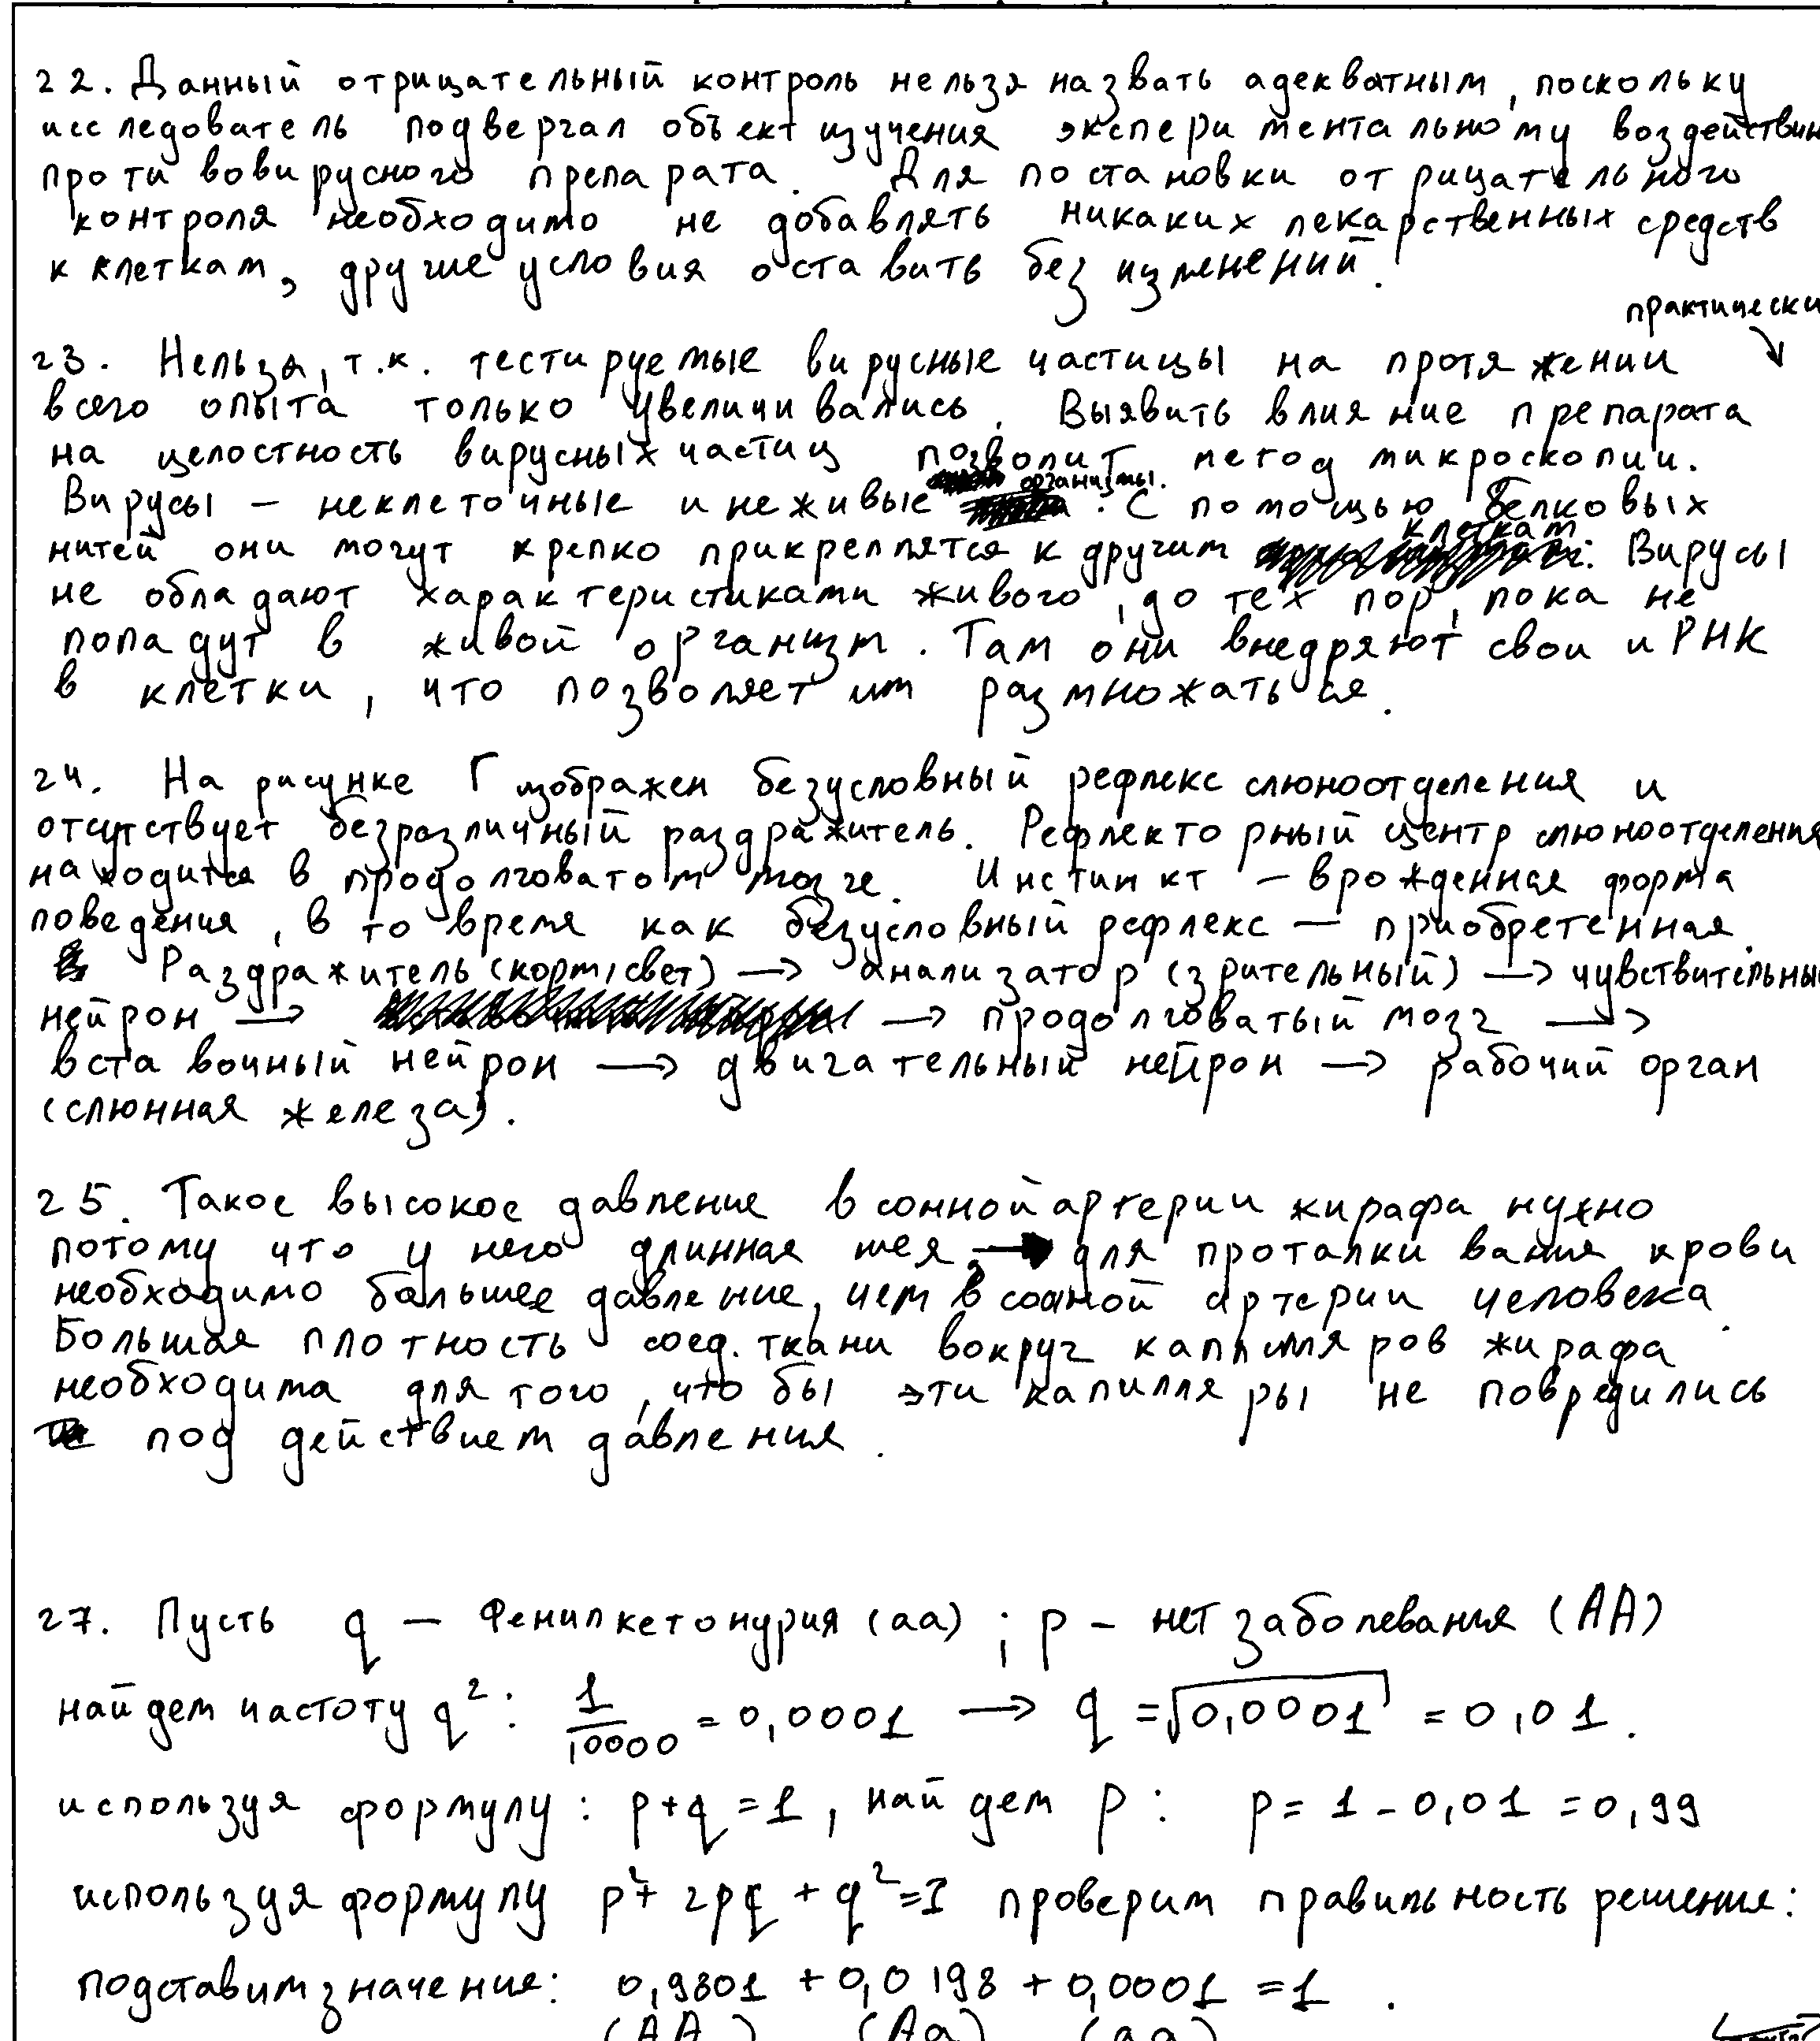 22. Данный отрицательный контроль нельзя назвать адекватным, поскольку
исследователь подвергал объект изучения экспериментальному воздействи
противовирусного препарата. Для постановки отрицательного
контроля необходимо не добавлять никаких лекарственных средств
к клеткам, другие условия оставить без изменений.
практически
23. Нельзя, т.к. тестируемые вирусные частицы на протяжении
всего опыта только увеличивались. Выявить влияние препарата
на целостность вирусных частиц позволит метод микроскопии.
Вирусы – неклеточные и неживые организмы. С помощью белковых
нитей они могут крепко прикреплятся к другим клеткам. Вирусы
не обладают характеристиками живого, до тех пор, пока не
попадут в живой организм. Там они внедряют свои иРНК
в клетки, что позволяет им размножаться.
24. На рисунке Г изображен безусловный рефлекс слюноотделения и
отсутствует безразличный раздражитель. Рефлекторный центр слюноотделения
находится в продолговатом мозге. Инстинкт – врожденная форма
поведения, в то время как безусловный рефлекс – приобретенная.
Раздражитель (корм/свет) → анализатор (зрительный) → чувствительны
нейрон → → продолговатый мозг →
вставочный нейрон → двигательный нейрон → рабочий орган
(слюнная железа).
25. Такое высокое давление в сонной артерии жирафа нужно
потому что у него длинная шея → для проталкивания крови
необходимо большее давление, чем в сонной артерии человека.
Большая плотность соед. ткани вокруг капилляров жирафа
необходима для того, что бы эти капилляры не повредились
под действием давления.
27. Пусть q – Фенилкетонурия (aa) ; p – нет заболевания (AA)
найдем частоту q²: 1/10000 = 0,0001 → q = √0,0001 = 0,01.
используя формулу: p+q=1, найдем p: p = 1 - 0,01 = 0,99
используя формулу p²+ 2pq + q²=1 проверим правильность решения:
подставим значение: 0,9801 + 0,0198 + 0,0001 = 1.
(AA) (Aa) (aa)